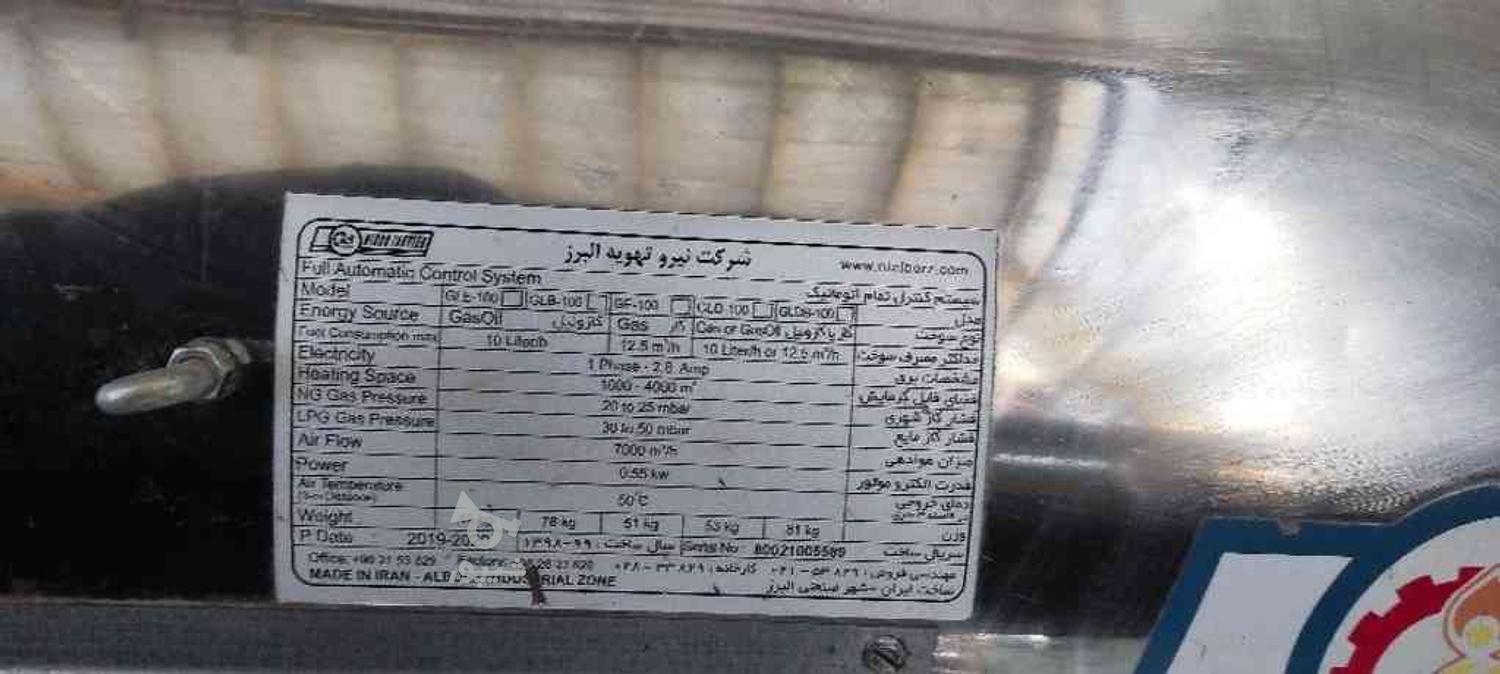 شرکت نیرو تهویه البرز
Full Automatic Control System سیستم کنترل تمام اتوماتیک
Model GLE-100 GLB-100 GF-100 GLD-100 GLDS-100 مدل
Energy Source GasOil گازوئیل Gas گاز Gas or GasOil گاز یا گازوئیل نوع سوخت
Fuel Consumption max 10 Liter/h 12.5 m³/h 10 Liter/h or 12.5 m³/h حداکثر مصرف سوخت
Electricity 1 Phase - 2.8 Amp مشخصات برق
Heating Space 1000 - 4000 m³ فضای قابل گرمایش
NG Gas Pressure 20 to 25 mbar فشار گاز شهری
LPG Gas Pressure 30 to 50 mbar فشار گاز مایع
Air Flow 7000 m³/h میزان هوادهی
Power 0.55 kw قدرت الکترو موتور
Air Temperature 50°C دمای خروجی
Weight 78 kg 51 kg 53 kg 81 kg وزن
P Date 2019-20 سال ساخت : ۱۳۹۸-۹۹ Serial No : 80021005589 سریال ساخت
Office: مهندسی فروش: ۰۲۱-۵۳۸۲۹ کارخانه: ۰۲۸-۳۳۸۲۹
MADE IN IRAN - ZONE ساخت ایران - شهر صنعتی البرز